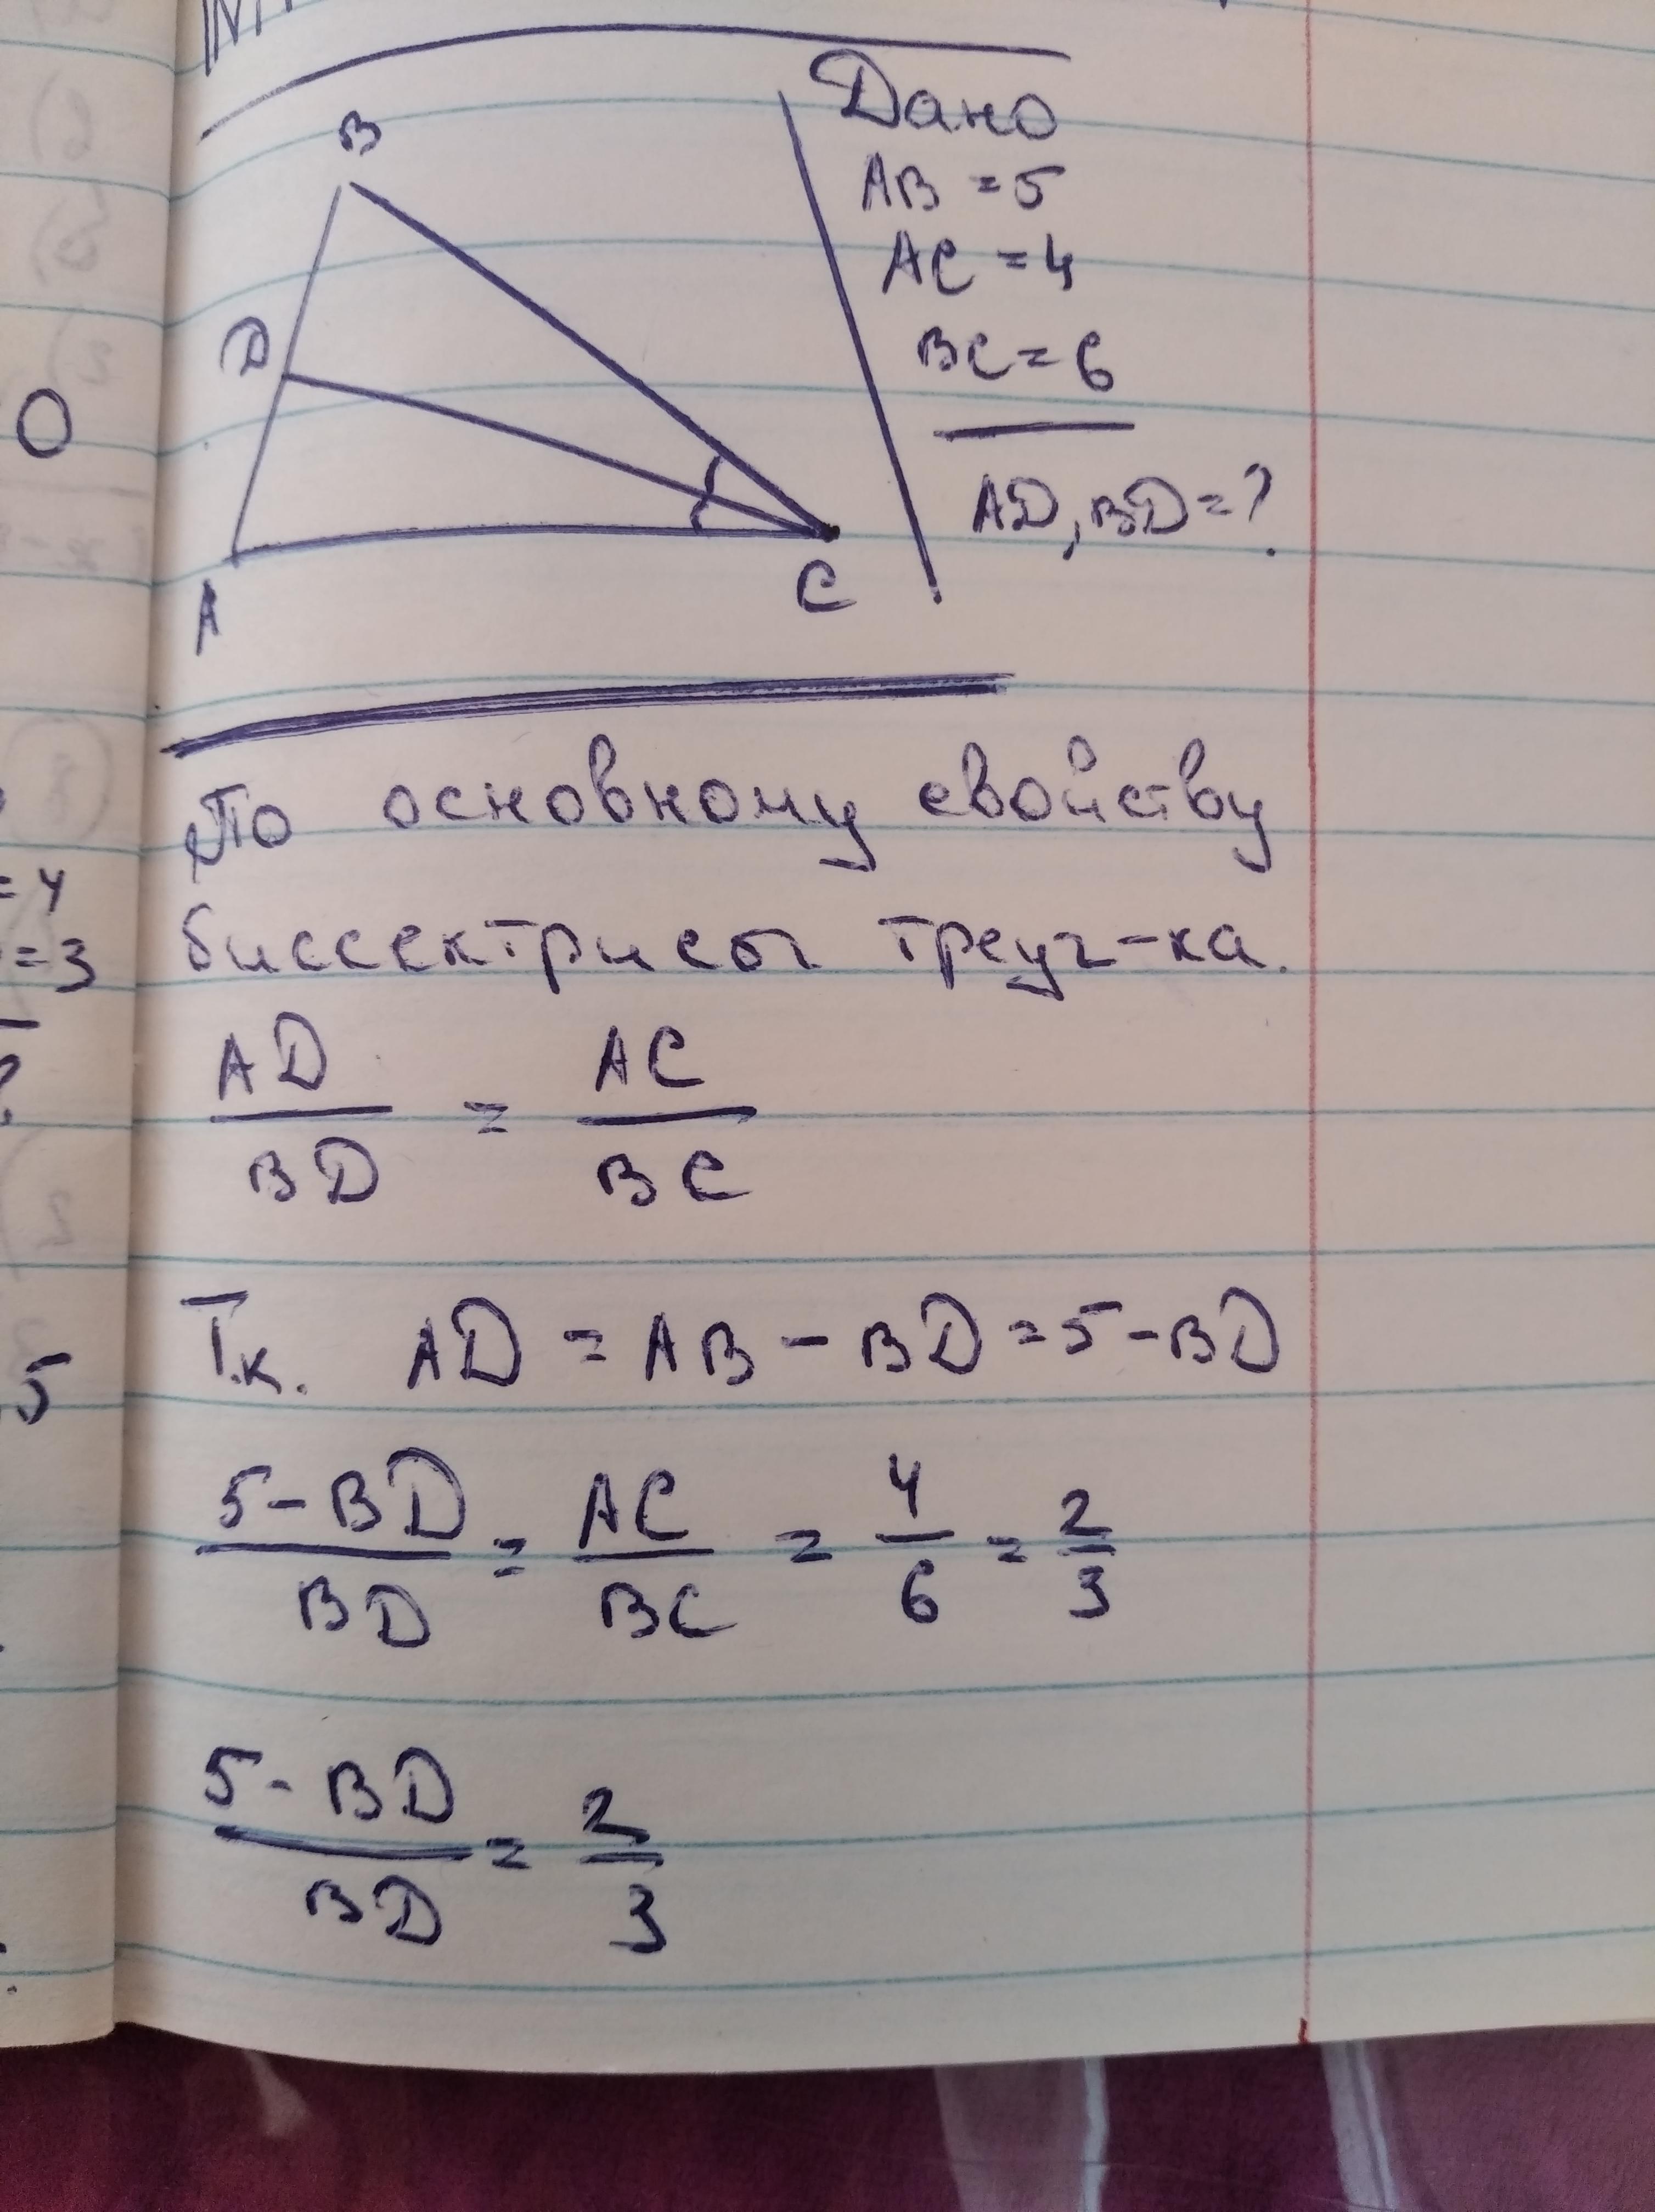 B
D
A
C
Дано
AB = 5
AC = 4
BC = 6
AD, BD = ?
По основному свойству
биссектрисы треуг-ка.
AD/BD = AC/BC
Т.к. AD = AB - BD = 5 - BD
5-BD/BD = AC/BC = 4/6 = 2/3
5-BD/BD = 2/3
0
=4
=3
?
5